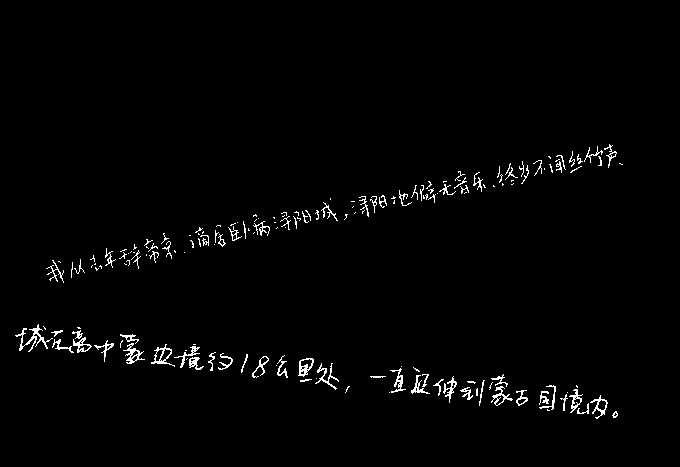 我从去年辞帝京、谪居卧病浔阳城，浔阳地僻无音乐、终岁不闻丝竹声、
城在离中蒙边境约18公里处，一直延伸到蒙古国境内。